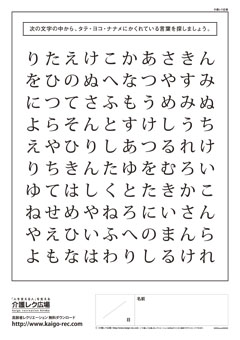 次の文字の中から、タテ・ヨコ・ナナメにかくれている言葉を探しましょう。
りたえけこかあさきん
をひのぬへなつやすみ
につてさふもうめみぬ
よらそんとすけしうち
えやひりしあつるれけ
りちきんたゆをむろい
ゆてはしくとたきかこ
ねせめやねろにいさん
やえひいふへのまんら
よもなはわりしるけれ
介護レク広場
高齢者レクリエーション 無料ダウンロード
http://www.kaigo-rec.com
名前
月